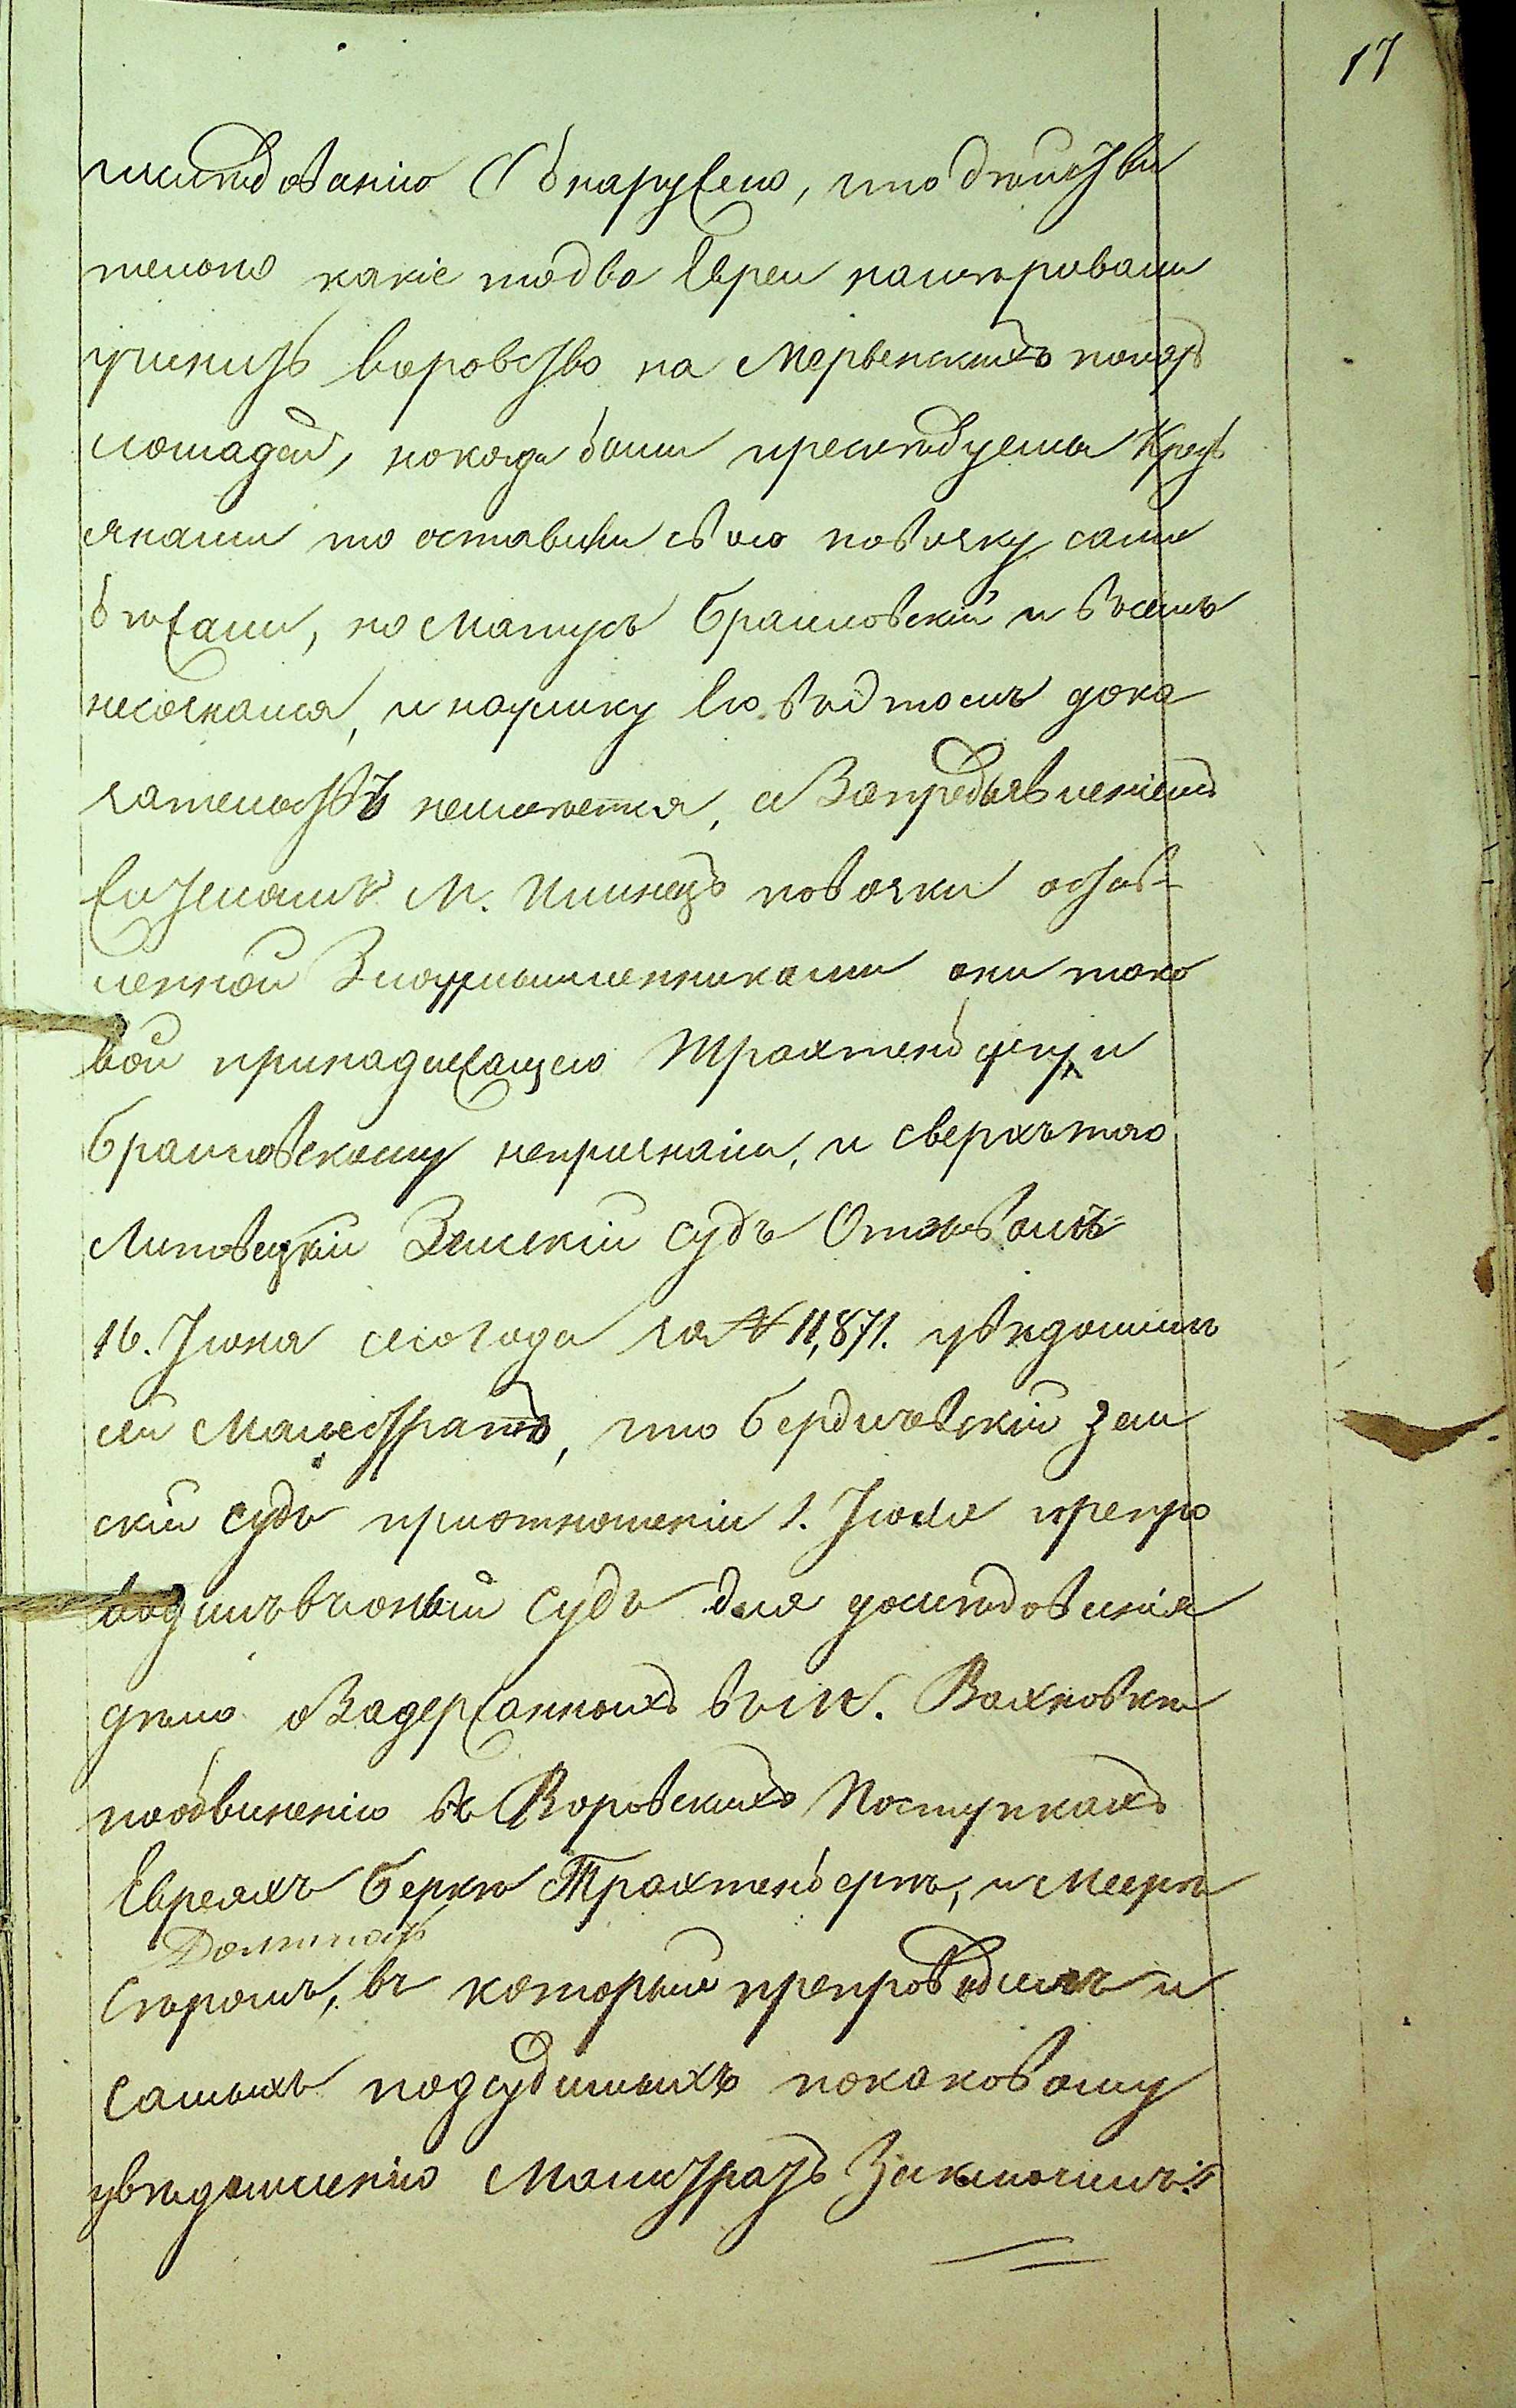 17
слѣдованію Обнаружено, что дѣйстви
тельно какіе тодва Евреи намѣровали
учинить воровство на Мервенскихъ поляхъ
лошадей, нокогда были преслѣдуемы Крестъ
янами то оставили свою повозку сами
бѣжали, но Матусъ Браиловскій и въсемъ
несознался, и наулику его въдтомъ дока
зательствъ неимѣется, а Запредъявленіемъ
Жителямъ М. повозки остав-
ленной Злоумышленниками они тако
вой принадлежащею Трахтенбергу и
Браиловскому непризнали, и сверхътого
Липовецкій Земскій судъ Отзывомъ
16. Іюня сегогода за № 11,871. увѣдомилъ
сей Магистратъ, что Бердичевскій зем
скій судъ приотношеніи 1. Іюня препро
водилъ въ оный судъ для дослѣдованія
дѣло оЗадержанныхъ въ м. Вахновкѣ
пообвиненію въ Воровскихъ Поступкахъ
Евреяхъ Беркѣ Трахтенбергѣ, и Меерѣ
Старомъ, въ который препроводилъ и
самыхъ подсудимыхъ покаковому
увѣдомленію Магистратъ Заключилъ: